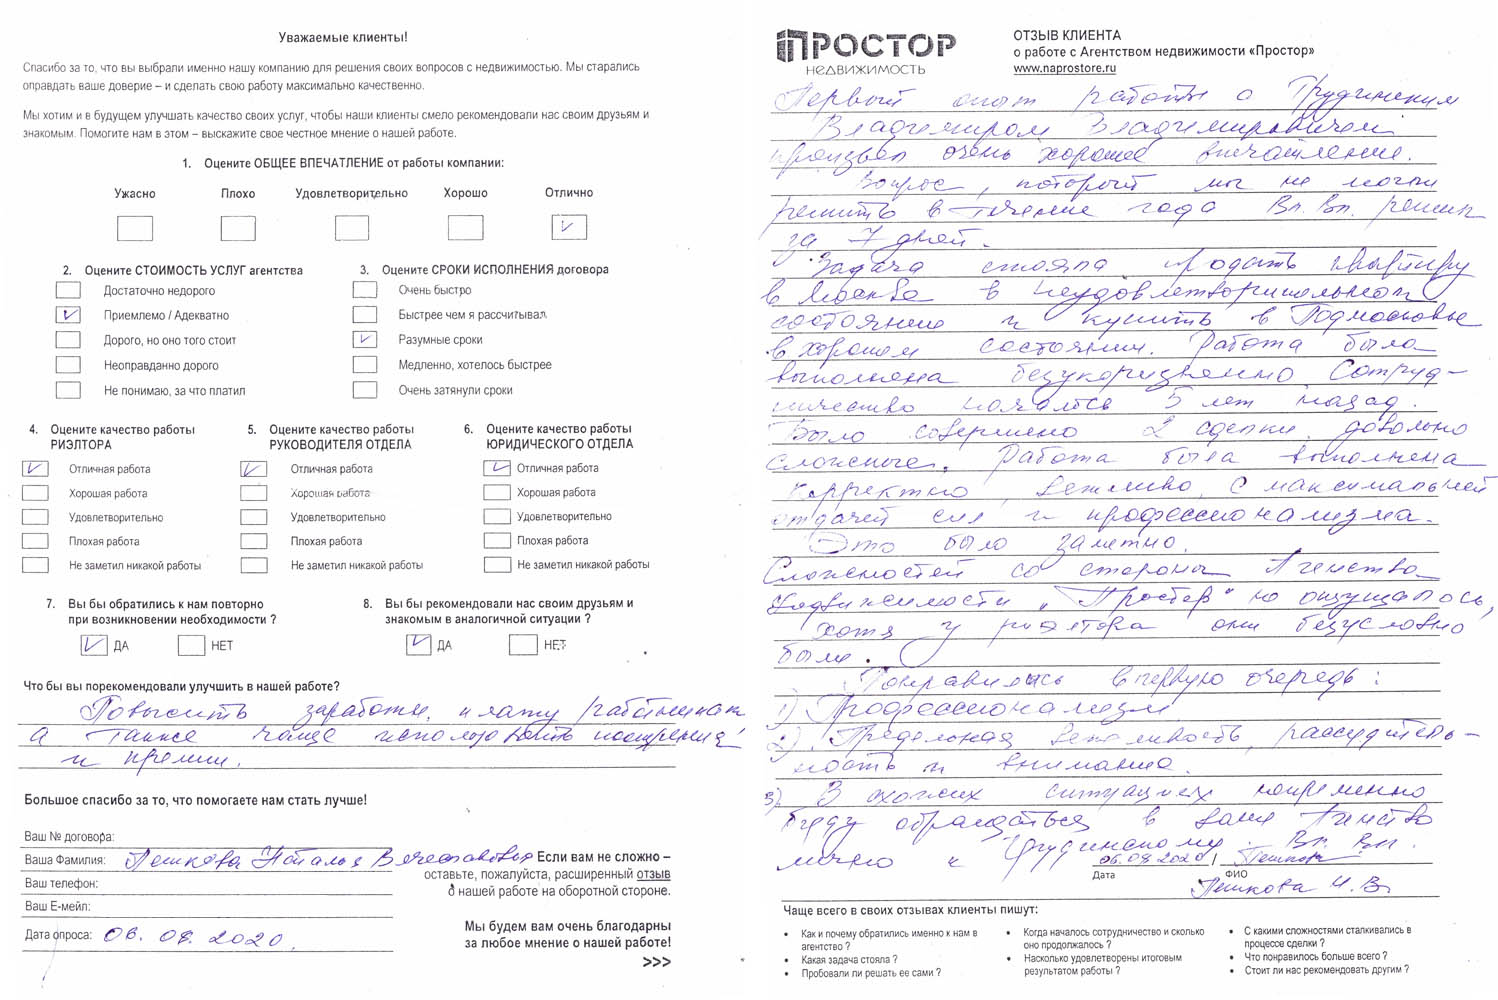 Уважаемые клиенты!
Спасибо за то, что вы выбрали именно нашу компанию для решения своих вопросов с недвижимостью. Мы старались
оправдать ваше доверие – и сделать свою работу максимально качественно.
Мы хотим и в будущем улучшать качество своих услуг, чтобы наши клиенты смело рекомендовали нас своим друзьям и
знакомым. Помогите нам в этом – выскажите свое честное мнение о нашей работе.
1. Оцените ОБЩЕЕ ВПЕЧАТЛЕНИЕ от работы компании:
Ужасно Плохо Удовлетворительно Хорошо Отлично
2. Оцените СТОИМОСТЬ УСЛУГ агентства
Достаточно недорого
Приемлемо / Адекватно
Дорого, но оно того стоит
Неоправданно дорого
Не понимаю, за что платил
3. Оцените СРОКИ ИСПОЛНЕНИЯ договора
Очень быстро
Быстрее чем я рассчитывал
Разумные сроки
Медленно, хотелось быстрее
Очень затянули сроки
4. Оцените качество работы
РИЭЛТОРА
Отличная работа
Хорошая работа
Удовлетворительно
Плохая работа
Не заметил никакой работы
5. Оцените качество работы
РУКОВОДИТЕЛЯ ОТДЕЛА
Отличная работа
Хорошая работа
Удовлетворительно
Плохая работа
Не заметил никакой работы
6. Оцените качество работы
ЮРИДИЧЕСКОГО ОТДЕЛА
Отличная работа
Хорошая работа
Удовлетворительно
Плохая работа
Не заметил никакой работы
7. Вы бы обратились к нам повторно
при возникновении необходимости ?
ДА НЕТ
8. Вы бы рекомендовали нас своим друзьям и
знакомым в аналогичной ситуации ?
ДА НЕТ
Что бы вы порекомендовали улучшить в нашей работе?
Повысить заработн. плату работникам
а также чаще использовать поощрения
и премии.
Большое спасибо за то, что помогаете нам стать лучше!
Ваш № договора:
Ваша Фамилия: Пешкова Наталья Вячеславовна
Ваш телефон:
Ваш Е-мейл:
Дата опроса: 06. 08. 2020.
Если вам не сложно –
оставьте, пожалуйста, расширенный отзыв
о нашей работе на оборотной стороне.
Мы будем вам очень благодарны
за любое мнение о нашей работе!
>>>
ПРОСТОР
НЕДВИЖИМОСТЬ
ОТЗЫВ КЛИЕНТА
о работе с Агентством недвижимости «Простор»
www.naprostore.ru
Первый опыт работы с Грудинским
Владимиром Владимировичем
произвел очень хорошее впечатление.
Вопрос, который мы не могли
решить в течение года Вл. Вл. решил
за 7 дней.
Задача стояла продать квартиру
в Москве в неудовлетворительном
состоянии и купить в Подмосковье
в хорошем состоянии. Работа была
выполнена безукоризненно. Сотруд-
ничество началось 5 лет назад.
Было совершено 2 сделки, довольно
сложные. Работа была выполнена
корректно, вежливо, с максимальной
отдачей сил и профессионализма.
Это было заметно.
Сложностей со стороны Агенства
недвижимости „Простор" не ощущалось,
хотя у риэлтора они безусловно
были.
Понравились в первую очередь:
1) Профессионализм
2) Предельная вежливость, рассудитель-
ность и внимание.
3) В похожих ситуациях непременно
буду обращаться в ваше Агенство
лично к Грудинскому Вл. Вл.
06.08.2020 / Пешкова
Дата ФИО
Пешкова Н. В.
Чаще всего в своих отзывах клиенты пишут:
• Как и почему обратились именно к нам в
агентство ?
• Какая задача стояла ?
• Пробовали ли решать ее сами ?
• Когда началось сотрудничество и сколько
оно продолжалось ?
• Насколько удовлетворены итоговым
результатом работы ?
• С какими сложностями сталкивались в
процессе сделки ?
• Что понравилось больше всего ?
• Стоит ли нас рекомендовать другим ?